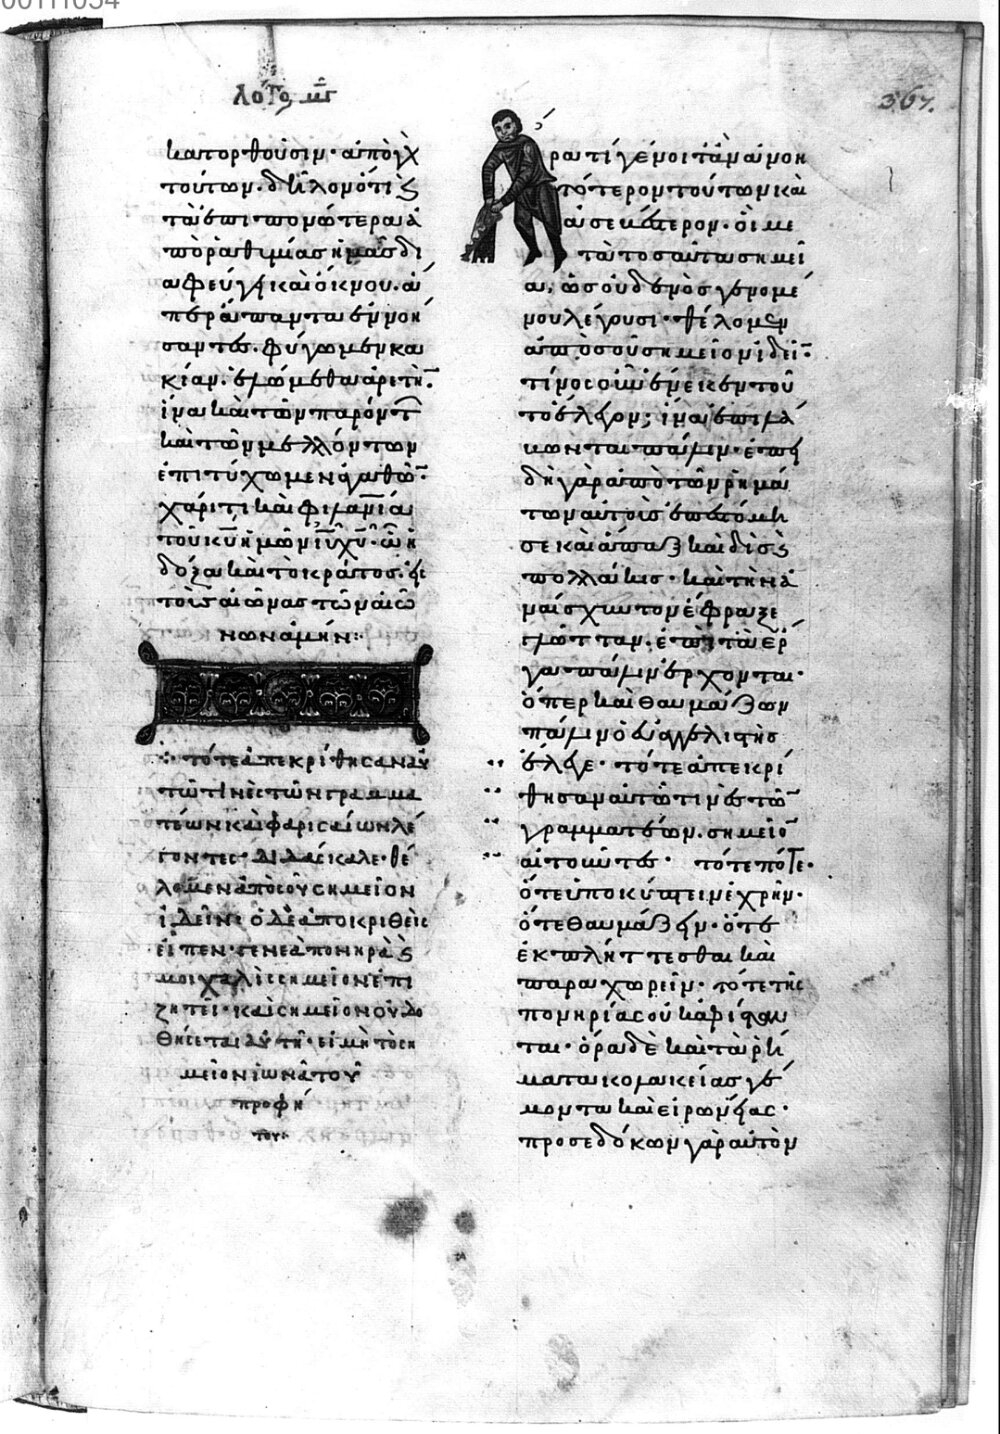 00111054
λόγος μγ
367.
κατορθοῦσιν· ἀπὸ γὰρ
τούτων. δηλονότι
τὰ ἐπιπονώτερα. ἀ
πὸ ῥαθυμίας ἡμᾶς δι
αφεύγει καὶ ὄκνου. ἅ
περ ἅπαντα ἐννοή
σαντες. φύγωμεν κα
κίαν. ἑλώμεθα ἀρετήν.
ἵνα καὶ τῶν παρόντων
καὶ τῶν μελλόντων
ἐπιτύχωμεν ἀγαθῶν.
χάριτι καὶ φιλανία
τοῦ κυ ἡμῶν ιυ χυ. ὧ ἡ
δόξα καὶ τὸ κράτος. εἰ
τοὺς αἰῶνας τῶν αἰώ
νων ἀμήν:
τότε ἀπεκρίθησαν αὐ
τῶ τινὲς τῶν γραμμα
τέων καὶ φαρισαίων λέ
γοντες· διδάσκαλε· θέ
λομεν ἀπὸ σοῦ σημεῖον
ἰδεῖν· ὁ δὲ ἀποκριθεὶς
εἶπεν· γενεὰ πονηρὰ καὶ
μοιχαλὶς σημεῖον ἐπι
ζητεῖ· καὶ σημεῖον οὐ δο
θήσεται αὐτῆ· εἰ μὴ τὸ ση
μεῖον ἰωνᾶ τοῦ
προφή
του·
ρα τί γένοιτ' ἂν ἀνοη
τότερον τούτων καὶ
ἀσεβέστερον. οἳ με
τὰ τοσαῦτα σημεῖ
α, ὡς οὐδενὸς γενομέ
νου λέγουσι· θέλομεν
ἀπὸ σοῦ σημεῖον ἰδεῖν.
τίνος οὖν ἕνεκεν τοῦ
το ἔλεγον; ἵνα ἐπιλά
βωνται πάλιν· ἐπει
δὴ γὰρ ἀπὸ τῶν ῥημά
των αὐτοὺς ἐπεστόμι
σε καὶ ἅπαξ καὶ δὶς καὶ
πολλάκις· καὶ τὴν ἀ
ναίσχυντον ἔφραξε
γλῶτταν. ἐπὶ τὰ ἔρ
γα πάλιν ἔρχονται·
ὅπερ καὶ θαυμάζων
πάλιν ὁ εὐαγγελιστὴς
ἔλεγε· τότε ἀπεκρί
θησαν αὐτῶ τινες τῶν
γραμματέων. σημεῖον
αἰτοῦντες· τότε πότε·
ὅτε ὑποκύπτειν ἐχρῆν·
ὅτε θαυμάζειν· ὅτε
ἐκπλήττεσθαι καὶ
παραχωρεῖν· τότε τῆς
πονηρίας οὐκ ἀφίσταν
ται· ὅρα δὲ καὶ τὰ ῥή
ματα κολακείας γέ
μοντα καὶ εἰρωνείας·
προσεδόκων γὰρ αὐτὸν